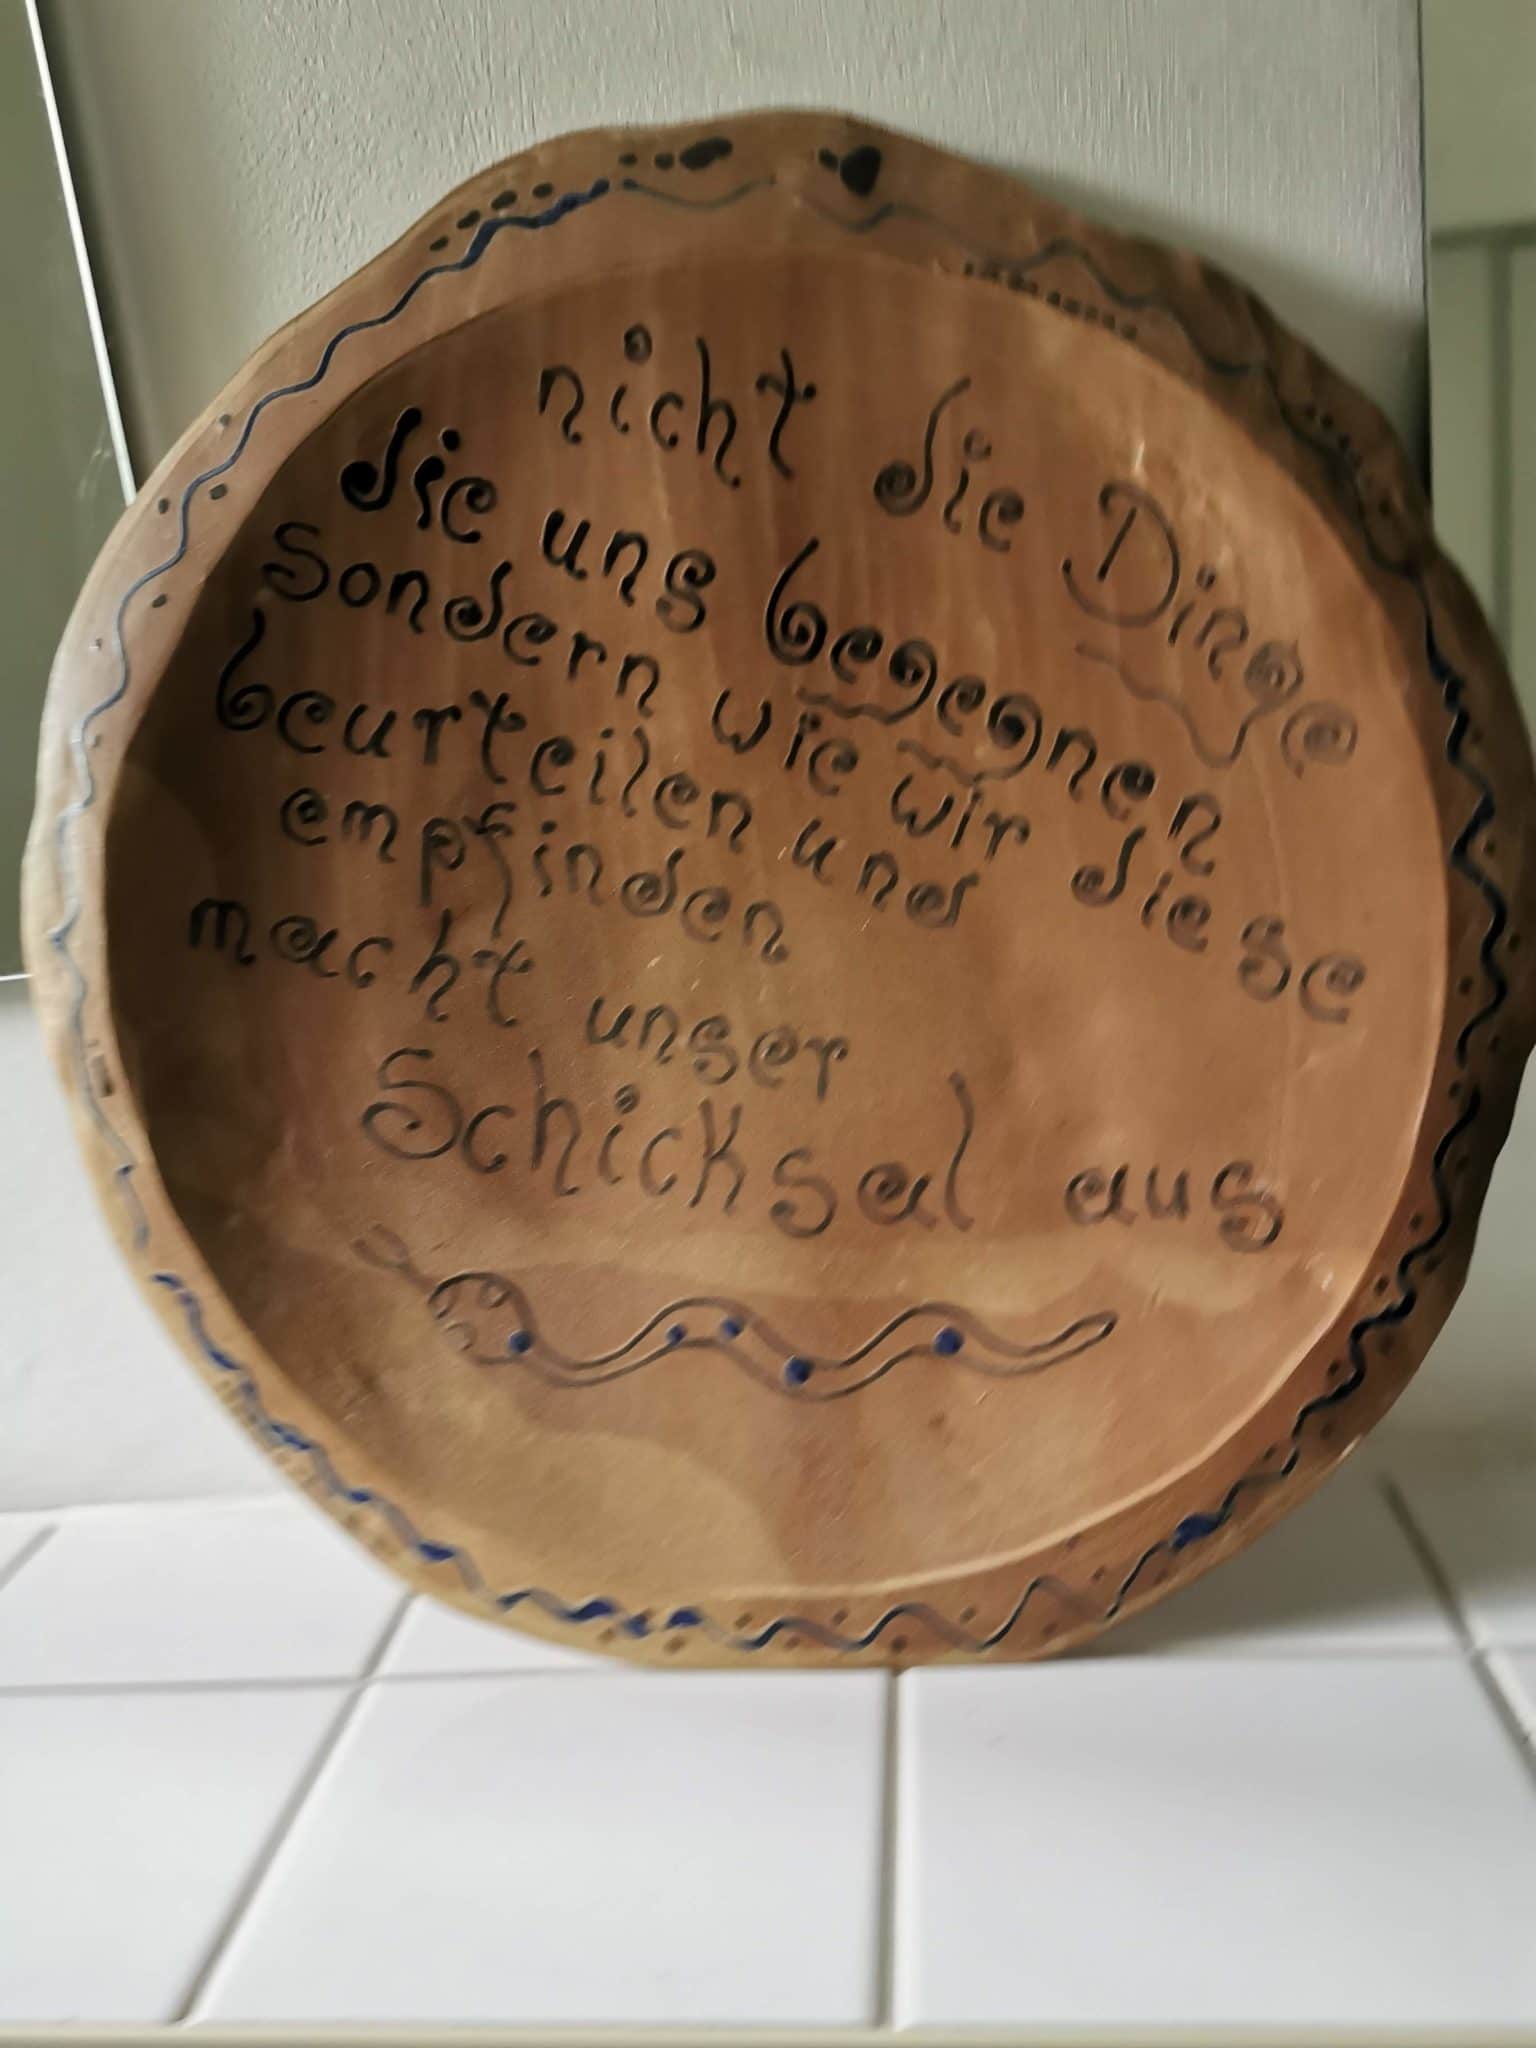 nicht die Dinge
die uns begegnen
Sondern wie wir diese
beurteilen und
empfinden
macht unser
Schicksal aus